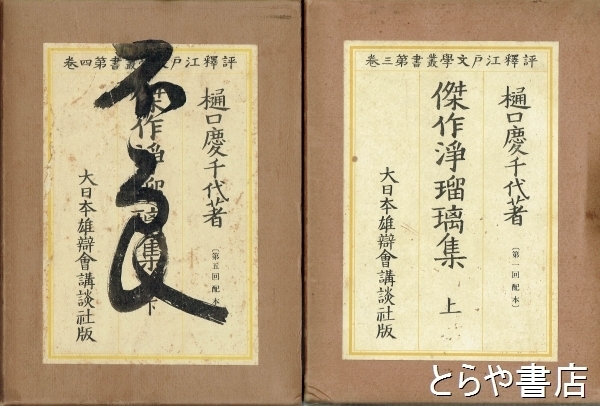 評釋江戸文學叢書第三卷
樋口慶千代著
〔第一回配本〕
傑作淨瑠璃集 上
大日本雄辯會講談社版
評釋江戸文學叢書第四卷
樋口慶千代著
〔第五回配本〕
傑作淨瑠璃集 下
大日本雄辯會講談社版
とらや書店